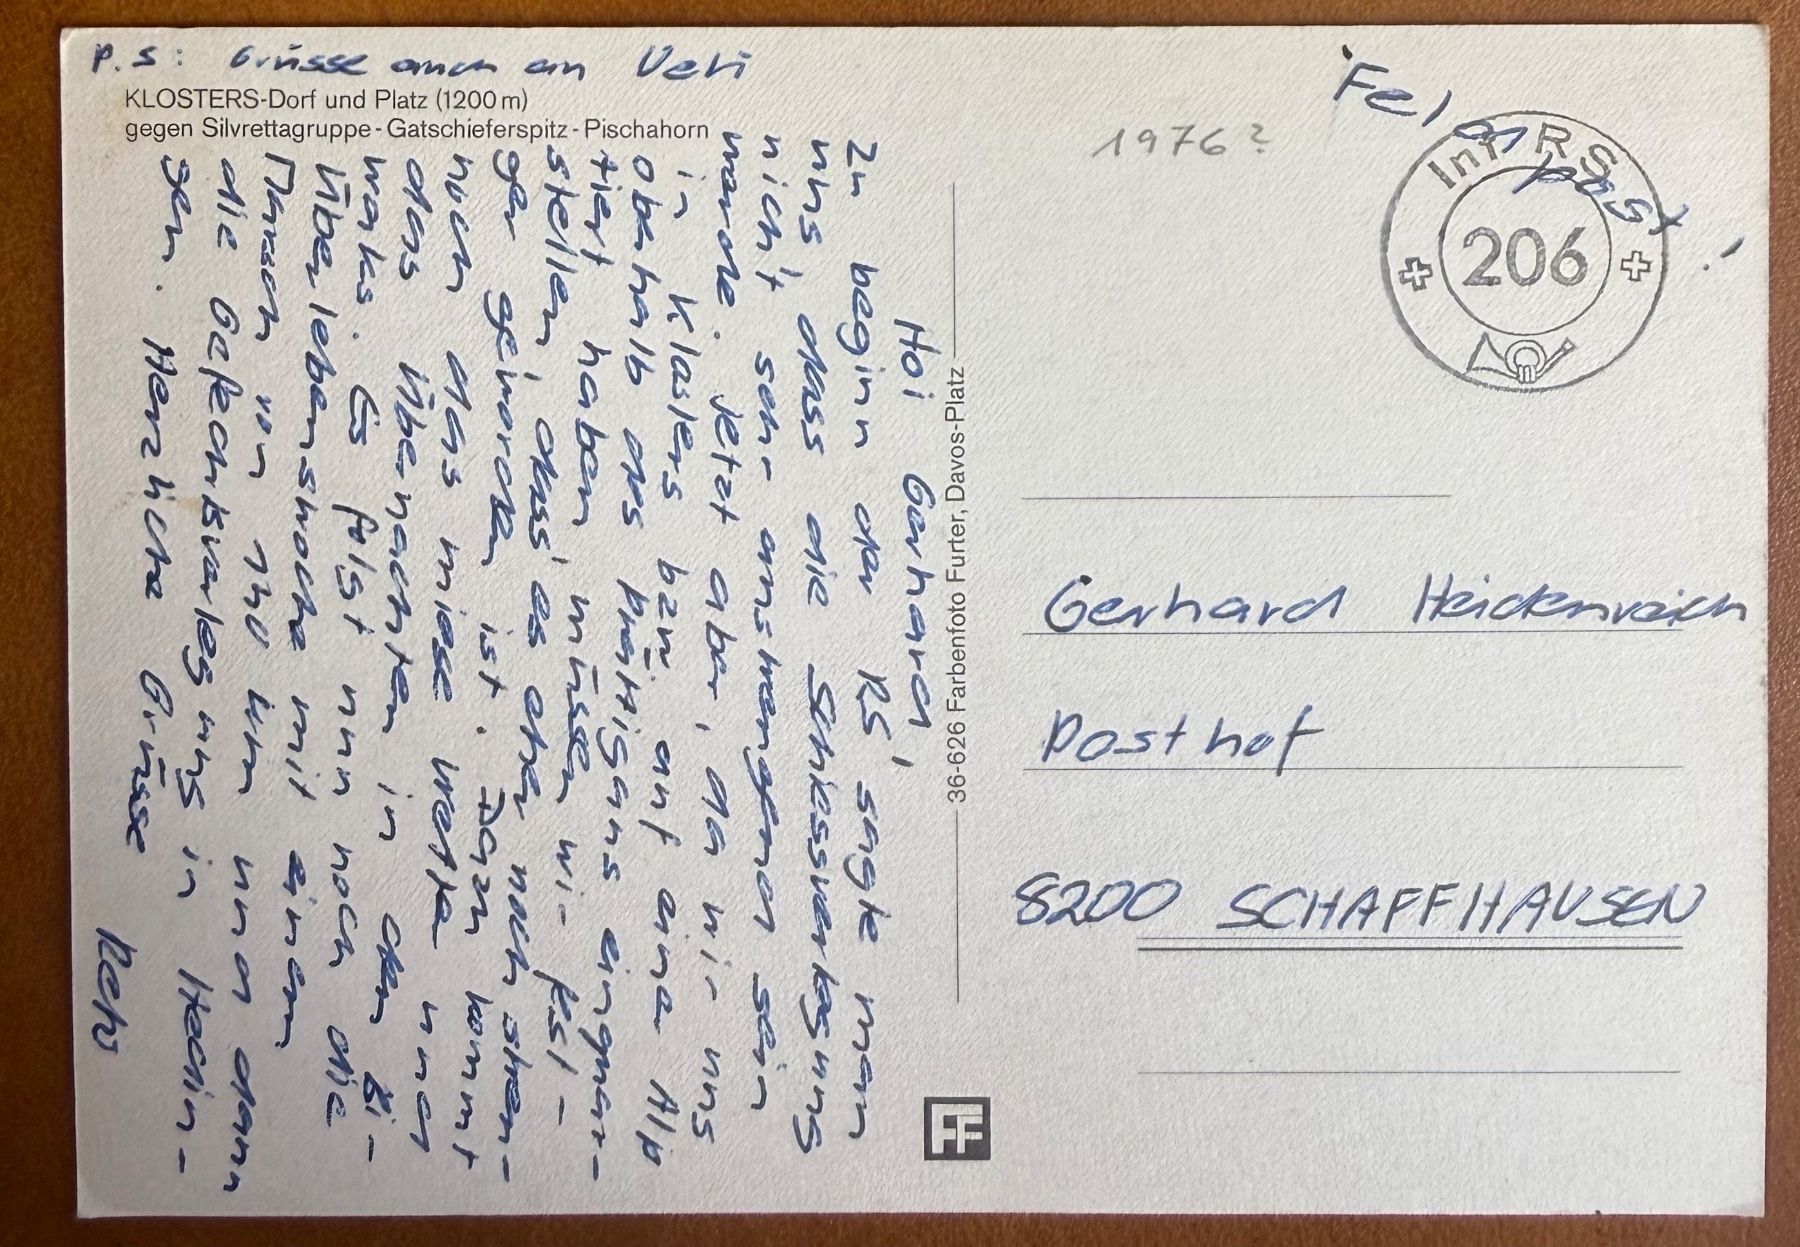 P.S: Grüsse auch an Ueli
KLOSTERS-Dorf und Platz (1200 m)
gegen Silvrettagruppe - Gatschieferspitz - Pischahorn
Hoi Gerhard,
Zu beginn der RS sagte man
uns, dass die Schiessverlegung
nicht sehr anstrengend sein
werde. Jetzt aber, da wir uns
in Klosters bzw. auf eine Alp
oberhalb des Prättigaus einquar-
tiert haben, müssen wir fest-
stellen, dass es eher noch stren-
ger geworden ist. Dazu kommt
noch das miese Wetter und
das Übernachten in den Bi-
waks. Es folgt nun noch die
Überlebenswoche mit einem
Marsch von 70 km und dann
die Gefechtsverlegung in
gen. Herzliche Grüsse
36-626 Farbenfoto Furter, Davos-Platz
FF
1976?
Feldpost!
Inf RS
206
Gerhard Heidenreich
Posthof
8200 SCHAFFHAUSEN